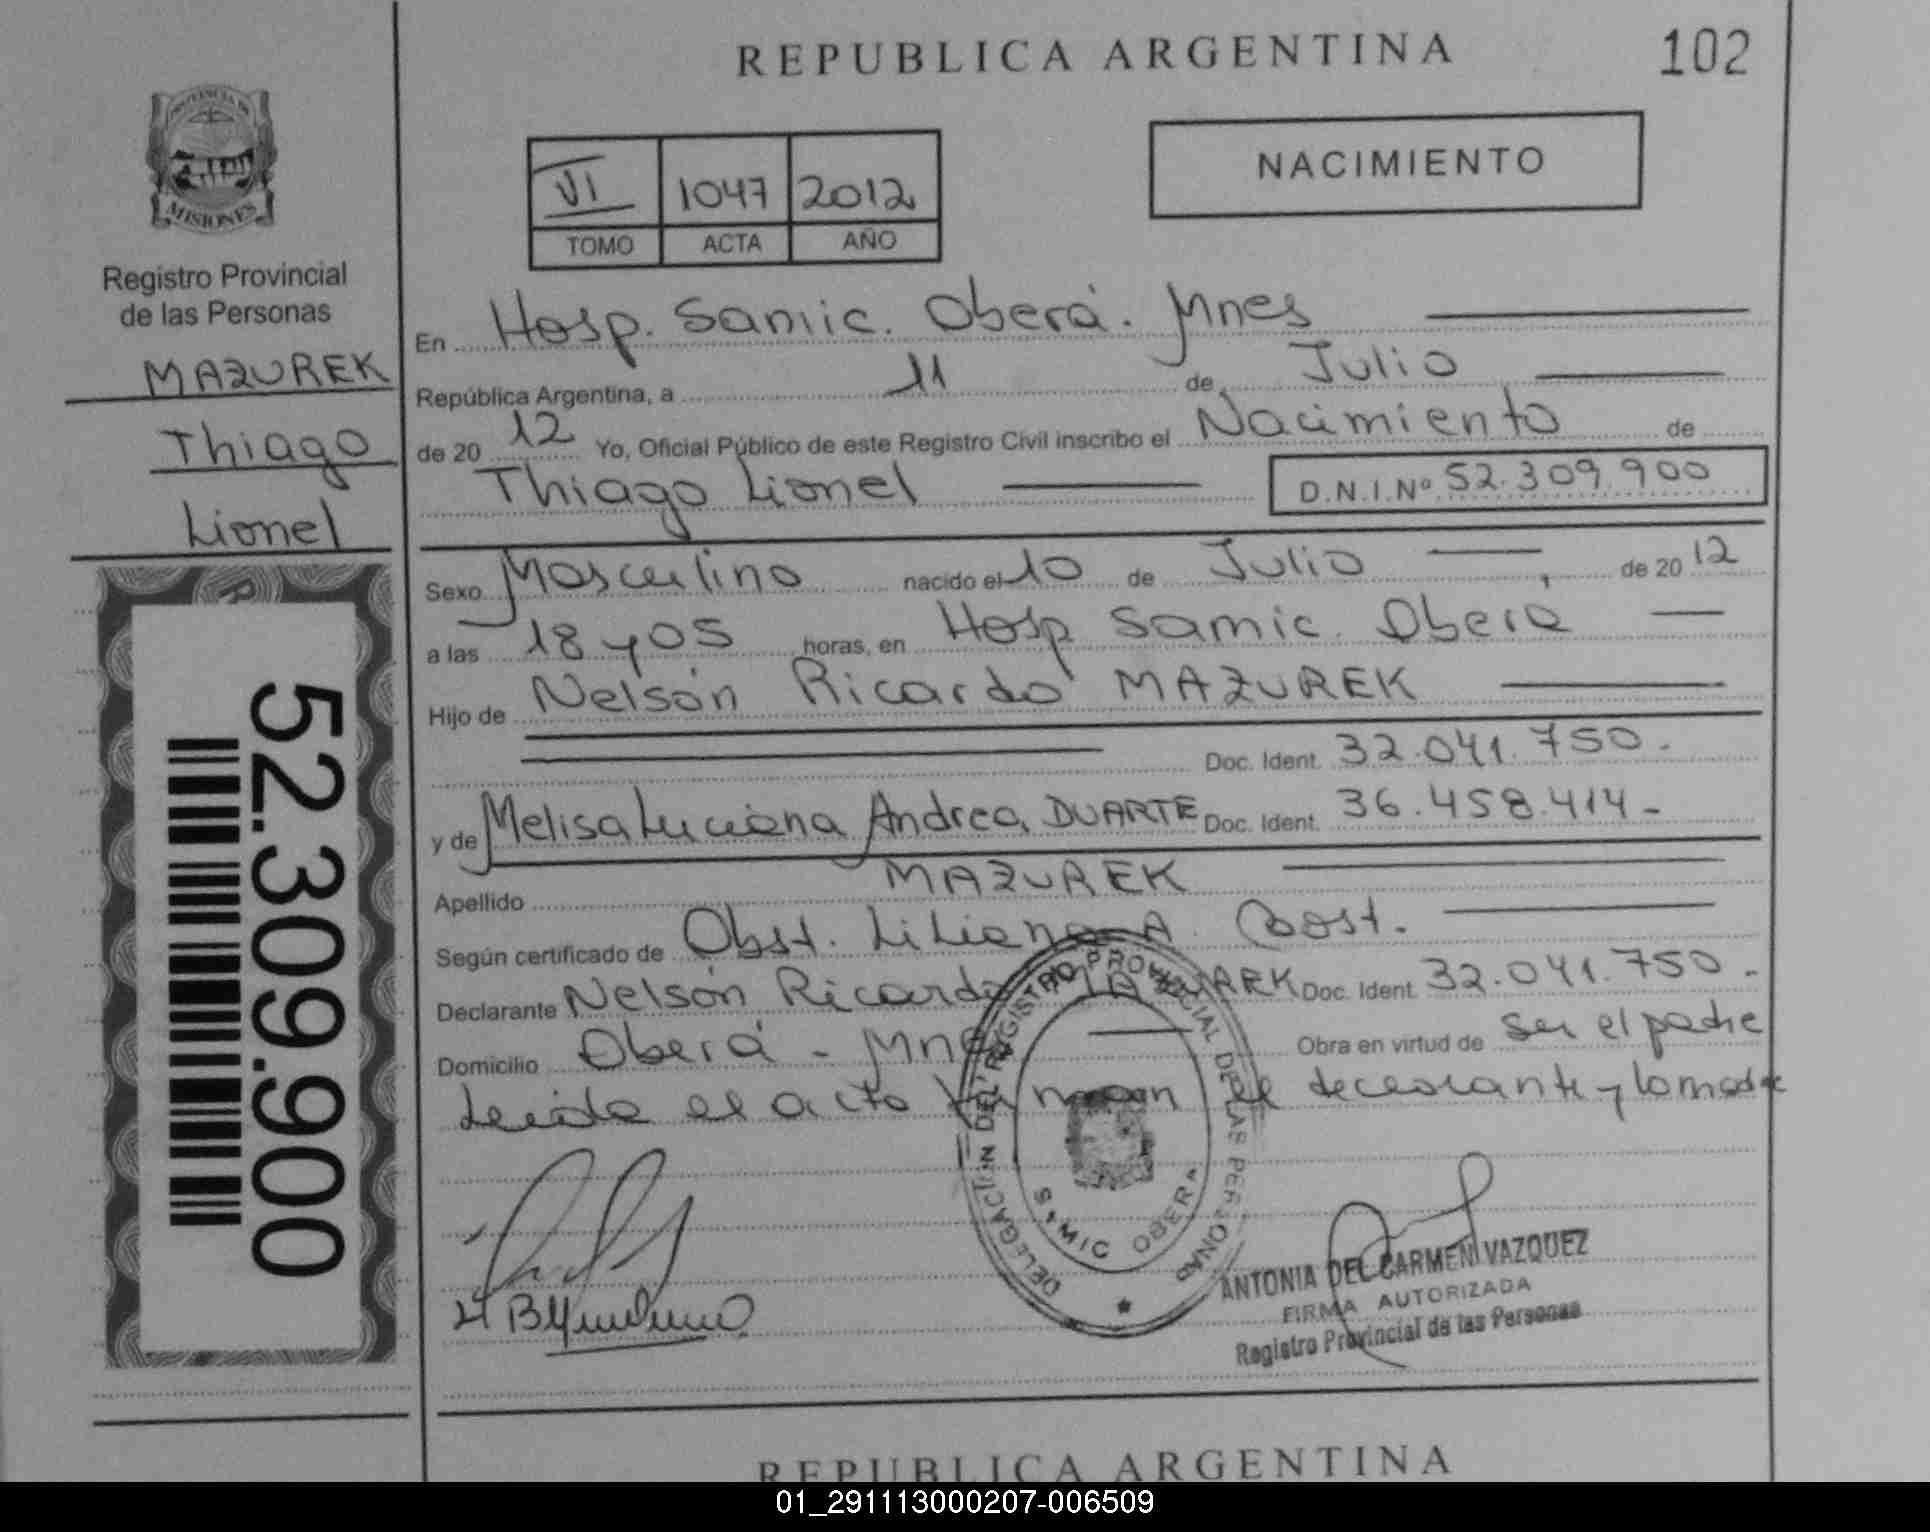 REPUBLICA ARGENTINA
102
PROVINCIA DE
MISIONES
Registro Provincial
de las Personas
MAZUREK
Thiago
Lionel
52.309.900
VI 1047 2012
TOMO ACTA AÑO
NACIMIENTO
En Hosp. Samic. Oberá. Mnes
República Argentina, a 11 de Julio
de 20 12 Yo, Oficial Público de este Registro Civil inscribo el Nacimiento de
Thiago Lionel D.N.I.Nº 52.309.900
Sexo Masculino nacido el 10 de Julio , de 20 12
a las 18 y 05 horas, en Hosp Samic. Oberá
Hijo de Nelsón Ricardo MAZUREK
Doc. Ident. 32.041.750.
y de Melisa Luciana Andrea DUARTE Doc. Ident. 36.458.414-
Apellido MAZUREK
Según certificado de Obst. Liliana A. Bost.
Declarante Nelsón Ricardo Doc. Ident. 32.041.750.
Domicilio Oberá - Mnes Obra en virtud de ser el padre
Leida el acta firman el declarante y la madre
DELEGACION DEL REGISTRO PROVINCIAL DE LAS PERSONAS
SAMIC OBERA
ANTONIA DEL CARMEN VAZQUEZ
FIRMA AUTORIZADA
Registro Provincial de las Personas
REPUBLICA ARGENTINA
01_291113000207-006509